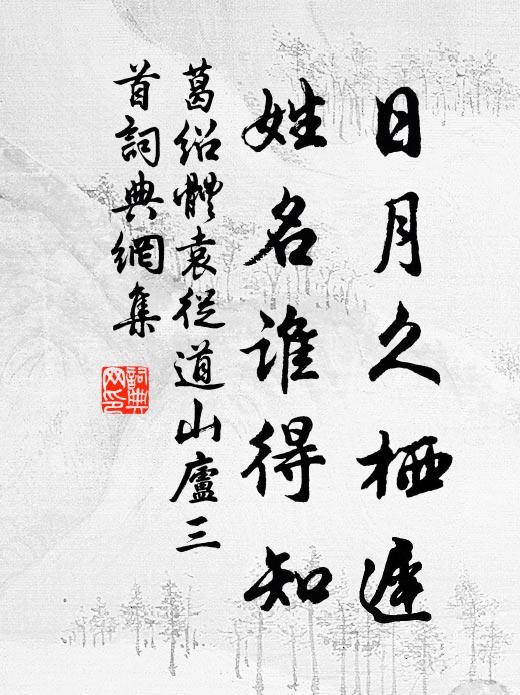 日月久栖遲
姓名谁得知
葛绍體袁從道山廬三
首詞典網集
詞典
网印